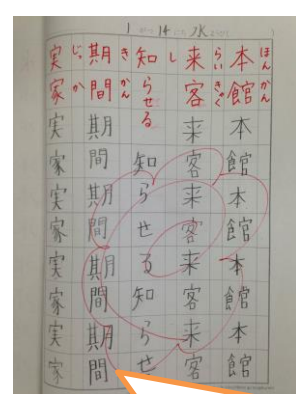 1 がつ 14 にち 水ようび
本館 ほんかん
本館本館本館本館
来客 らいきゃく
来客来客来客来客
知らせる し
知らせる知らせ
期間 きかん
期間期間期間期間
実家 じっか
実家実家実家実家